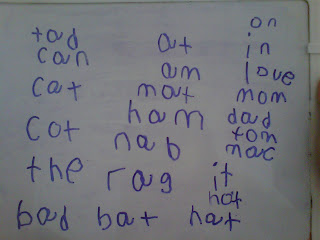 tad
can
cat
cot
the
bad
at
am
mat
ham
nab
rag
bat
on
in
love
mom
dad
tom
mac
it
hot
hat